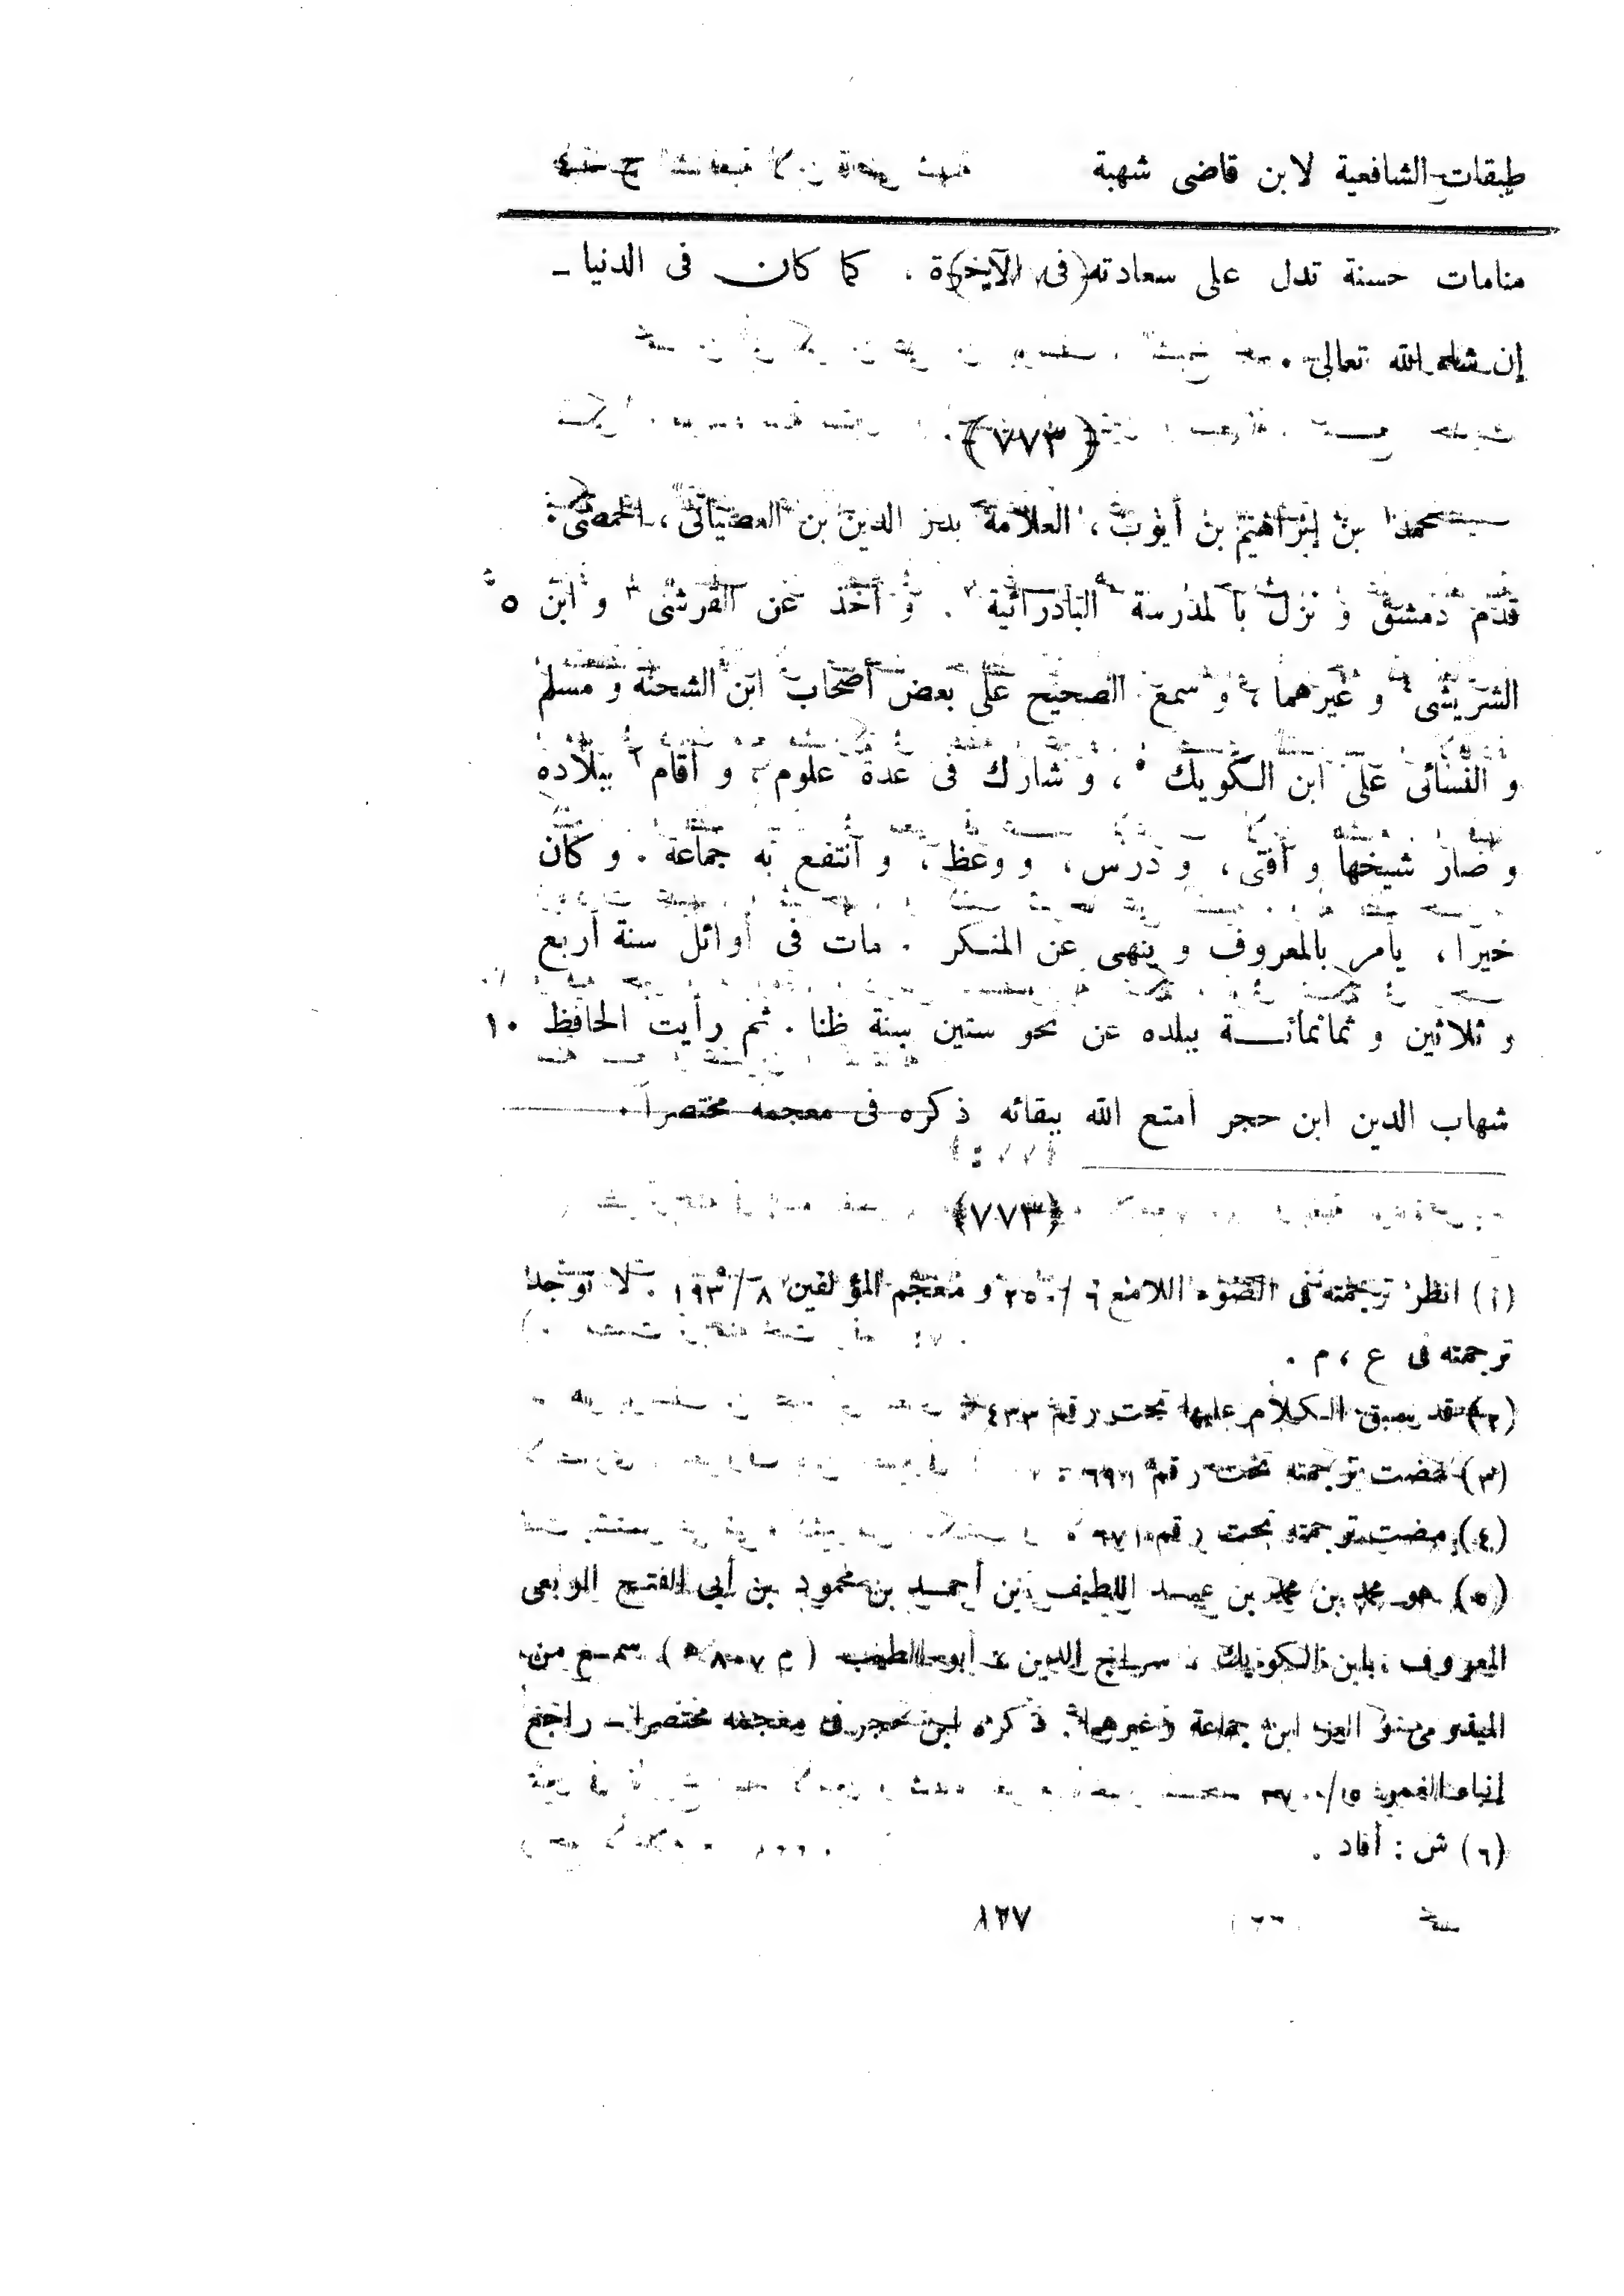 طبقات الشافعية لابن قاضى شهبة ج ٤
منامات حسنة تدل على سعادته فى الآخرة ، كما كان فى الدنيا ـ
إن شاء الله تعالى .
(٧٧٣)
محمد١ بن إبراهيم بن أيوب ، العلامة بدر الدين بن العصياتى ، الحمصى .
قدم دمشق و نزل بالمدرسة البادرائية٢ . و أخذ عن القرشى٣ و ابن ٥
الشريشى٤ و غيرهما ، و سمع الصحيح على بعض أصحاب ابن الشحنة و مسلم
و النسائى على ابن الكويك٥ ، و شارك فى عدة علوم ، و أقام٦ ببلاده
و صار شيخها و أفتى ، و درس ، و وعظ ، و انتفع به جماعة . و كان
خيرا ، يأمر بالمعروف و ينهى عن المنكر . مات فى أوائل سنة أربع
و ثلاثين و ثمانمائة ببلده عن نحو ستين سنة ظنا . ثم رأيت الحافظ ١٠
شهاب الدين ابن حجر أمتع الله ببقائه ذكره فى معجمه مختصرا .
(٧٧٣)
(١) انظر ترجمته فى الضوء اللامع ٦ / ٢٥٠ و معجم المؤلفين ٨ / ١٩٣ . لا توجد
ترجمته فى ع ، م .
(٢) قد سبق الكلام عليها تحت رقم ٤٣٣
(٣) مضت ترجمته تحت رقم ٦٩١ .
(٤) مضت ترجمته تحت رقم
(٥) هو محمد بن محمد بن عبد اللطيف بن أحمد بن محمود بن أبى الفتح الربعى
المعروف بابن الكويك ، سراج الدين ، أبو الطيب ( م ٨٠٧ ه ) سمع من
الميدومى و العز ابن جماعة و غيرهما . ذكره ابن حجر فى معجمه مختصرا ـ راجع
إنباء الغمر
(٦) ش : أفاد .
١٢٧